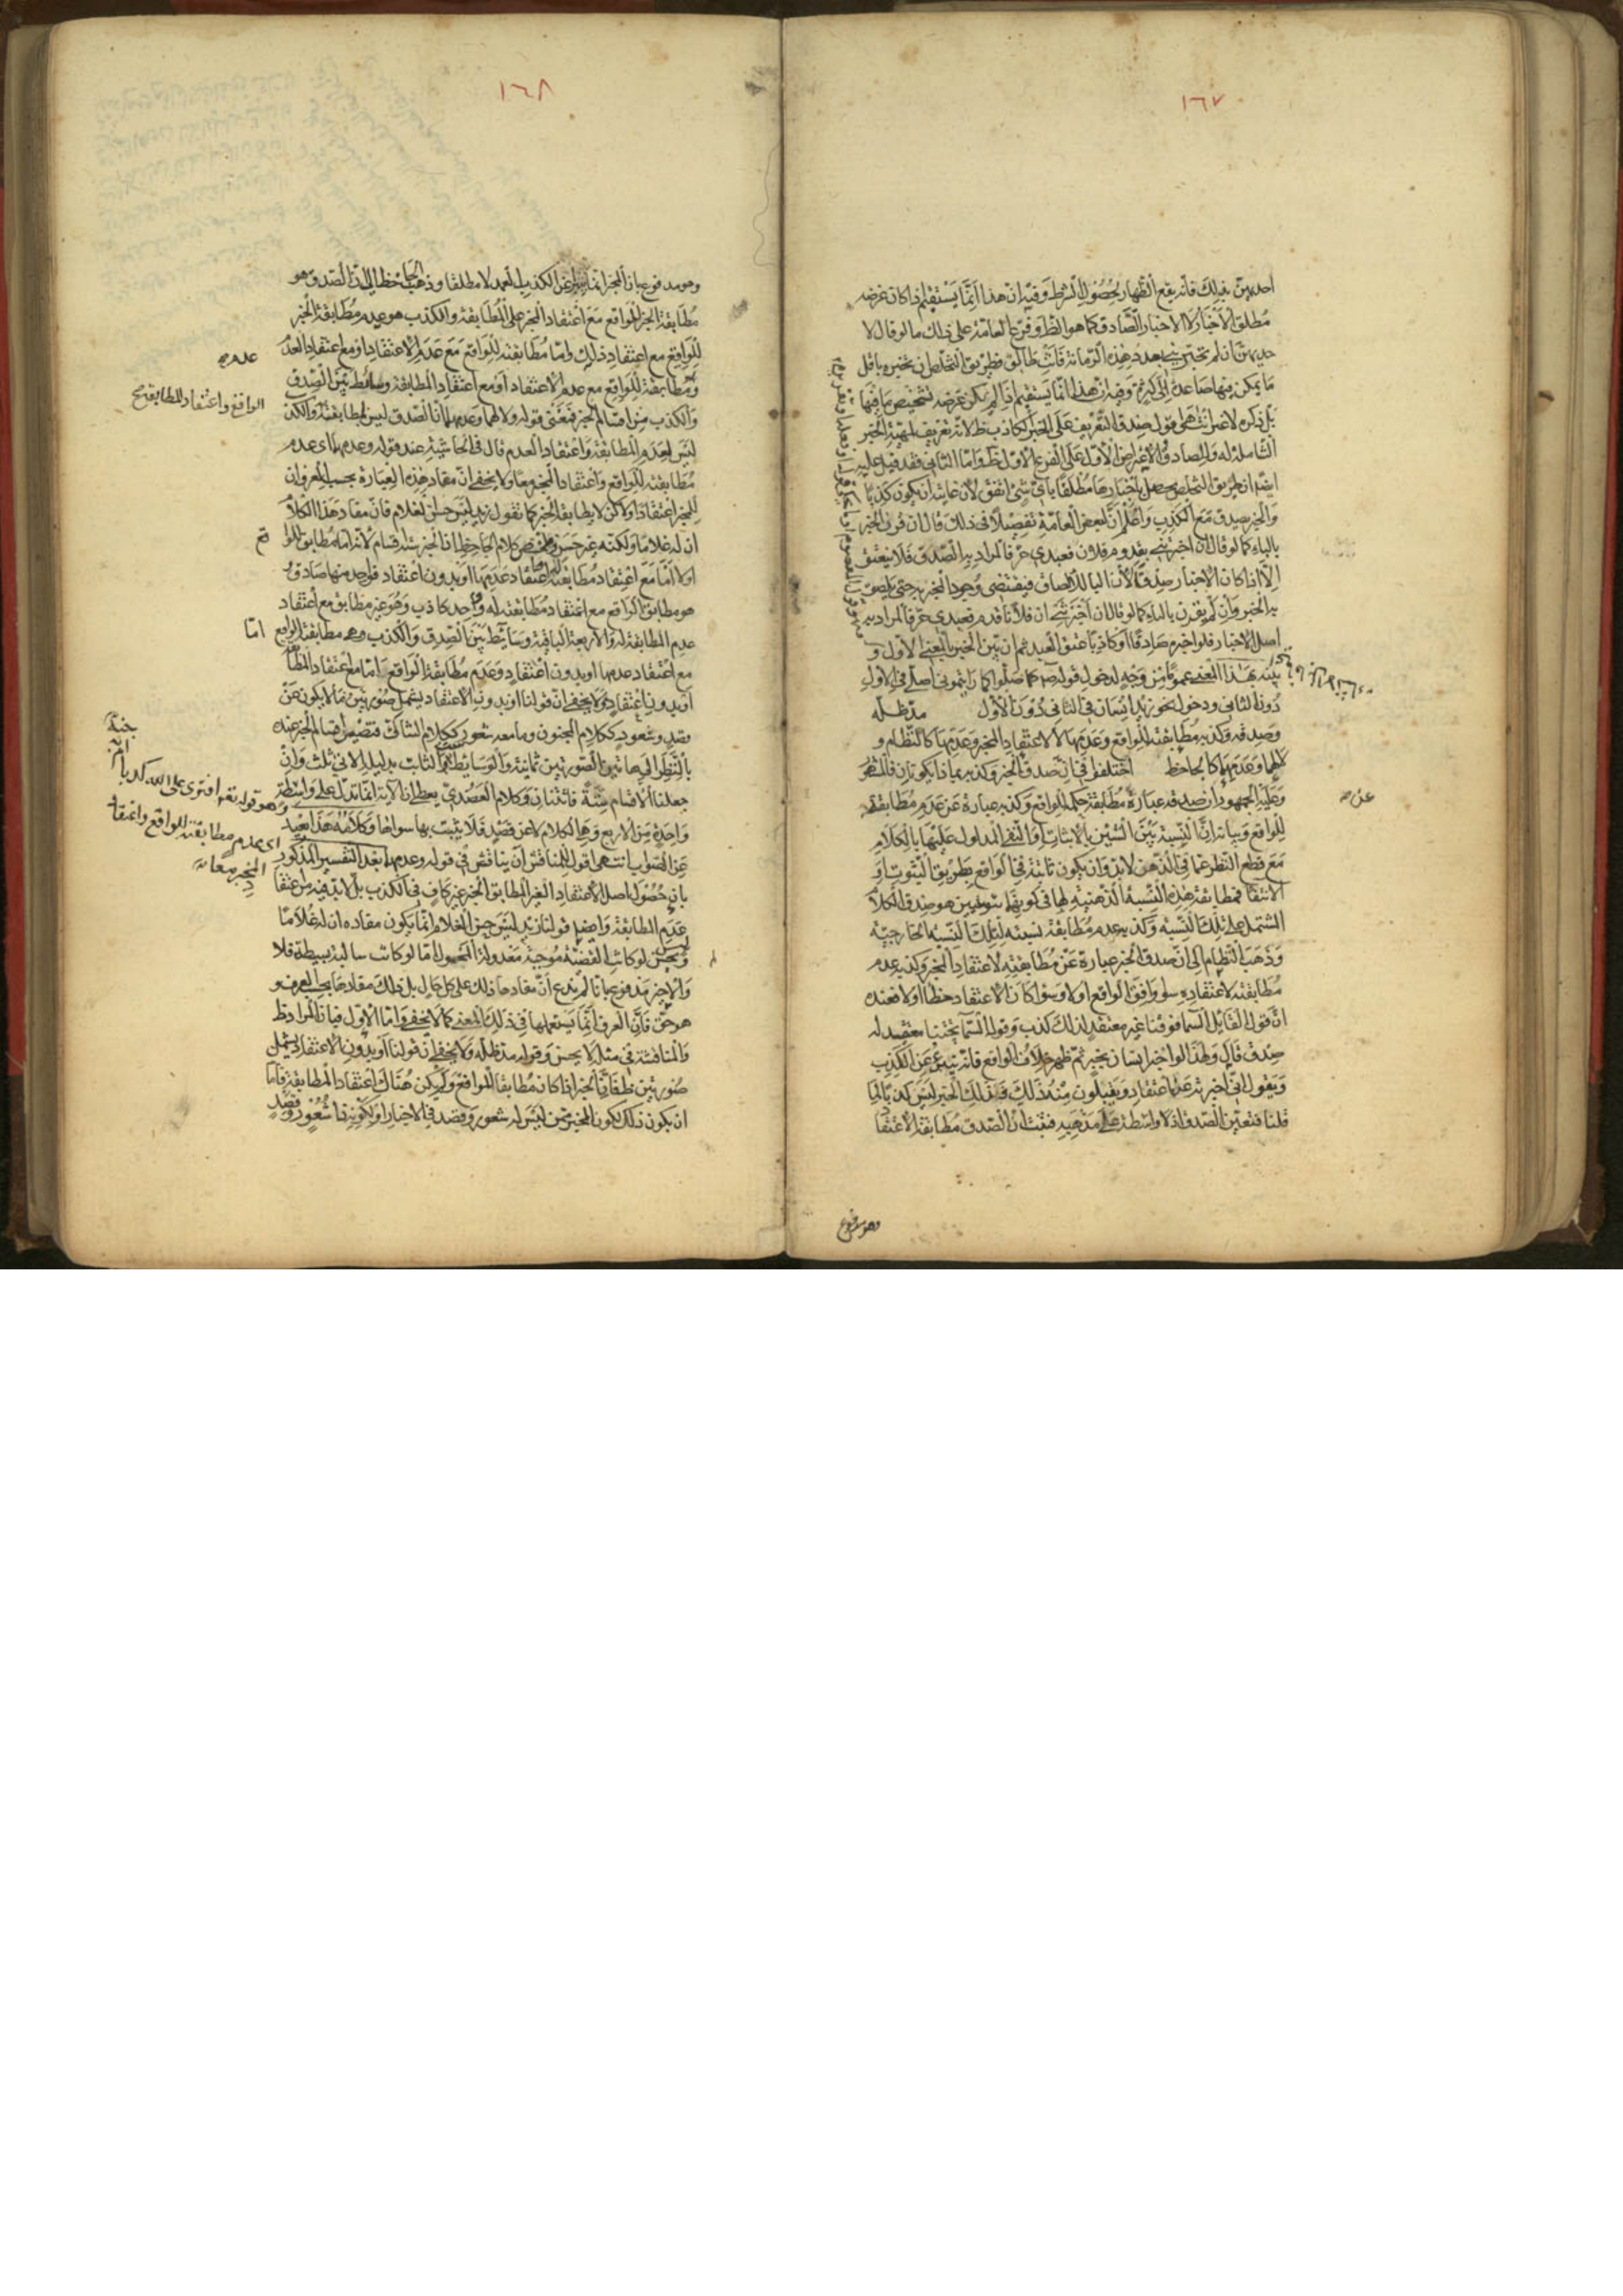 ١٦٧
احديهن بذلك فانه يقع الظهار لحصول الشرط وفيه ان هذا انما يستقيم اذا كان غرضه
مطلق الاخبار لا الاخبار الصادق كما هو الظ وفرع العامة على ذلك ما لو قال لا
ان لم تخبريني بعدد هذه الرمانة فانت طالق فطريق التخلص ان تخبره باقل
ما يمكن فيها صاعدا الى وفيه ان هذا انما يستقيم اذا لم يكن غرضه تشخيص ما فيها
صدق التعريف على الخبر الكاذب ظ لانه تعريف لمهية الخبر
الشاملة له وللصادق والاعتراض الاول على الفرع الاول ظ واما الثاني فقد قيل عليه
ايضا ان طريق التخلص يحصل باخبارها مطلقا باي شئ اتفق لان غايته ان يكون كذبا
والخبر يصدق مع الكذب واعلم ان لبعض العامة تفصيلا في ذلك قال ان قرن الخبر
بالباء كما لو قال ان اخبرتني بقدوم فلان فعبدي حر فالمراد به الصدق فلا ينعتق
الا اذا كان الاخبار صدقا لان البا للالصاق فيقتضي وجود المخبر به حتى يلصق
به الخبر وان لم يقرن بالباء كما لو قال ان اخبرتني ان فلانا قدم فعبدي حر فالمراد به
اصل الاخبار فلو اخبره صادقا او كاذبا عتق العبد ثم ان بين الخبر بالمعنى الاول و
بينه بهذا المعنى عموما من وجه لدخول قوله ص صلوا كما رايتموني اصلي في الاول
دون الثاني ودخول نحو زيد انسان في الثاني دون الاول مد ظله
وصدقه وكذبه مطابقته للواقع وعدمها لا لاعتقاد المخبر وعدمها كالنظام و
لا لهما وعدمهما كالجاحظ اختلفوا في ان صدق الخبر وكذبه بماذا يكونان فالمشهور
وعليه الجمهور ان صدقه عبارة عن مطابقة حكمه للواقع وكذبه عبارة عن عدم مطابقته
للواقع وبيانه ان النسبة بين الشيئين بالاثبات او النفي المدلول عليها بالكلام
مع قطع النظر عما في الذهن لابد وان يكون ثابتة في الواقع بطريق الثبوت او
الانتفا فمطابقة هذه النسبة الذهنية لها في كونهما ثبوتيين هو صدق الكلام
المشتمل على تلك النسبة وكذبه عدم مطابقة نسبته لتلك النسبة الخارجية
وذهب النظام الى ان صدق الخبر عبارة عن مطابقته لاعتقاد المخبر وكذبه عدم
مطابقته لاعتقاده سواء وافق الواقع اولا وسواء كان الاعتقاد خطأ اولا فعنده
ان قول القائل السما فوقنا غير معتقد لذلك كذب وقوله السما تحتنا معتقدا له
صدق قال ولهذا لو اخبر انسان بخبر ثم ظهر خلاف الواقع فانه يتبرئ عن الكذب
ويقول اني اخبرته عن اعتقاد ويقبلون منه ذلك فذلك الخبر ليس كذبا لما
قلنا فتعين الصدق اذ لا واسطة على مذهبه فثبت ان الصدق مطابقة الاعتقاد
وهو مدفوع
١٦٨
وهو مدفوع بان المخبر انما يتبرئ عن الكذب العمد لا مطلقا وذهب الجاحظ الى ان الصدق هو
مطابقة الخبر للواقع مع اعتقاد المخبر على المطابقة والكذب هو عدم مطابقة الخبر
للواقع مع اعتقاد ذلك واما مطابقته للواقع مع عدم الاعتقاد او مع اعتقاد العدم
وعدم مطابقته للواقع مع عدم الاعتقاد او مع اعتقاد المطابقة وسائط بين الصدق
والكذب من اقسام الخبر فمعنى قوله ولا لهما وعدمهما ان الصدق ليس لمطابقة والكذب
ليس لعدم المطابقة واعتقاد العدم قال في الحاشية عند قوله وعدمهما اي عدم
مطابقته للواقع واعتقاد المخبر معا ولا يخفى ان مفاد هذه العبارة بحسب العرف ان
للمخبر اعتقادا ولكن لا يطابقه الخبر كما تقول زيد ليس حسن الغلام فان مفاد هذا الكلام
ان له غلاما ولكنه غير حسن وملخص كلام الجاحظ ان الخبر ستة اقسام لانه اما مطابق للواقع
اولا اما مع اعتقاد مطابقته له او اعتقاد عدمها او بدون اعتقاد فواحد منها صادق
هو مطابق الواقع مع اعتقاد مطابقته له وواحد كاذب وهو غير مطابق مع اعتقاد
عدم المطابقة له والاربعة الباقية وسايط بين الصدق والكذب وهي مطابقة الواقع اما
مع اعتقاد عدمها او بدون اعتقاد وعدم مطابقة الواقع اما مع اعتقاد المطابقة
او بدون اعتقاد ولا يخفى ان قولنا او بدون الاعتقاد يشمل صورتين ما لا يكون عن
قصد وشعور ككلام المجنون وما معه شعور ككلام الشاك فتصير اقسام الخبر عنده
بالنظر الى هاتين الصورتين ثمانية والوسايط ستة الثابت بدليله الاتي ثلث وان
جعلنا الاقسام ستة فاثنان وكلام العضدي يعطي ان الاية انما تدل على واسطة
واحدة من الاربع وهي الكلام لا عن قصد فلا يثبت بها سواها وكلامه هذا بعيد
عن الصواب انتهى اقول للمناقش ان يناقش في قوله وعدمهما بعد التفسير المذكور
بان حصول اصل الاعتقاد الغير المطابق للخبر غير كاف في الكذب بل لابد فيه من اعتقاد
عدم المطابقة وايضا قولنا زيد ليس حسن الغلام انما يكون مفاده ان له غلاما
ليس بحسن لو كانت القضية موجبة معدولة المحمول اما لو كانت سالبة بسيطة فلا
والاخير مدفوع بانا لم ندع ان مفادها ذلك على كل حال بل ذلك مفادها بحسب العرف و
هو حق فان العرف انما يستعملها في ذلك المعنى كما لا يخفى واما الاول فبان المراد ظ
والمناقشة في مثله لا يحسن وقوله مد ظله ولا يخفى ان قولنا او بدون الاعتقاد يشمل
صورتين ظ فان الخبر اذا كان مطابقا للواقع ولم يكن هناك اعتقاد المطابقة فاما
ان يكون ذلك لكون المخبر ممن ليس له شعور وقصد في الاخبار او لكونه ذا شعور وقصد
عدمه
الواقع واعتقاد المطابقة صح
وهو قوله تعه افترى على الله كذبا ام به جنة
اى عدم مطابقته للواقع واعتقاد
المخبر معا